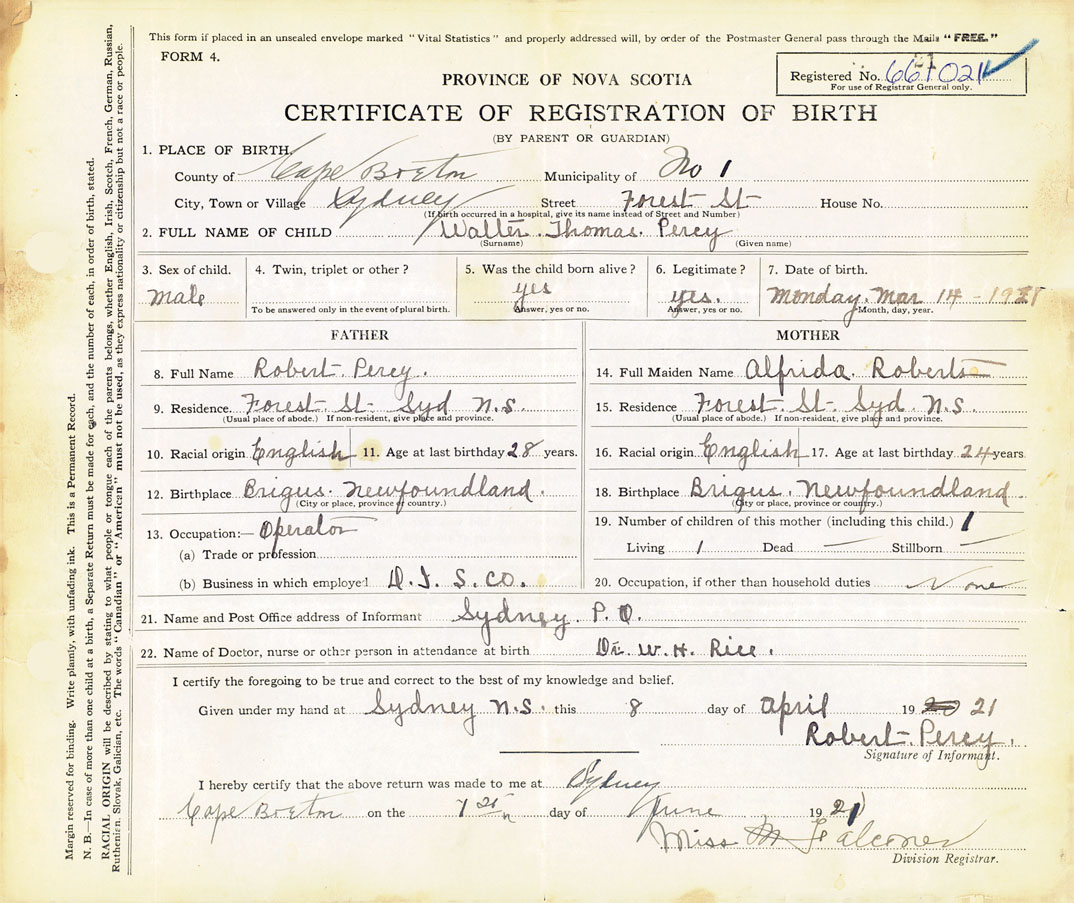 This form if placed in an unsealed envelope marked "Vital Statistics" and properly addressed will, by order of the Postmaster General pass through the Mails "FREE."
FORM 4.
21
PROVINCE OF NOVA SCOTIA
Registered No. 661021
For use of Registrar General only.
CERTIFICATE OF REGISTRATION OF BIRTH
(BY PARENT OR GUARDIAN)
1. PLACE OF BIRTH.
County of Cape Breton Municipality of No 1
City, Town or Village Sydney Street Forest St House No.
(If birth occurred in a hospital, give its name instead of Street and Number)
2. FULL NAME OF CHILD Walter Thomas. Percy
(Surname) (Given name)
3. Sex of child. 4. Twin, triplet or other? 5. Was the child born alive? 6. Legitimate? 7. Date of birth.
male yes yes. Monday. Mar 14 - 1921
To be answered only in the event of plural birth. Answer, yes or no. Answer, yes or no. Month, day, year.
FATHER
8. Full Name Robert Percy.
9. Residence. Forest St Syd N.S.
(Usual place of abode.) If non-resident, give place and province.
10. Racial origin English 11. Age at last birthday 28 years.
12. Birthplace Brigus. Newfoundland.
(City or place, province or country.)
13. Occupation:— Operator
(a) Trade or profession
(b) Business in which employed D. I. S. CO.
MOTHER
14. Full Maiden Name Alfrida Roberts
15. Residence Forest. St. Syd. N.S.
(Usual place of abode.) If non-resident, give place and province.
16. Racial origin English 17. Age at last birthday 24 years
18. Birthplace Brigus. Newfoundland.
(City or place, province or country.)
19. Number of children of this mother (including this child.) 1
Living 1 Dead — Stillborn —
20. Occupation, if other than household duties None
21. Name and Post Office address of Informant Sydney. P. O.
22. Name of Doctor, nurse or other person in attendance at birth Dr. W. H. Rice.
I certify the foregoing to be true and correct to the best of my knowledge and belief.
Given under my hand at Sydney N.S. this 8 day of April 19 21
Robert. Percy.
Signature of Informant.
I hereby certify that the above return was made to me at Sydney
Cape Breton on the day of June 19 21
Miss Falconer
Division Registrar.
Margin reserved for binding. Write plainly, with unfading ink. This is a Permanent Record.
N. B.—In case of more than one child at a birth, a Separate Return must be made for each, and the number of each, in order of birth, stated.
RACIAL ORIGIN will be described by stating to what people or tongue each of the parents belongs, whether English, Irish, Scotch, French, German, Russian,
Ruthenian, Slovak, Galician, etc. The words "Canadian" or "American" must not be used, as they express nationality or citizenship but not a race or people.